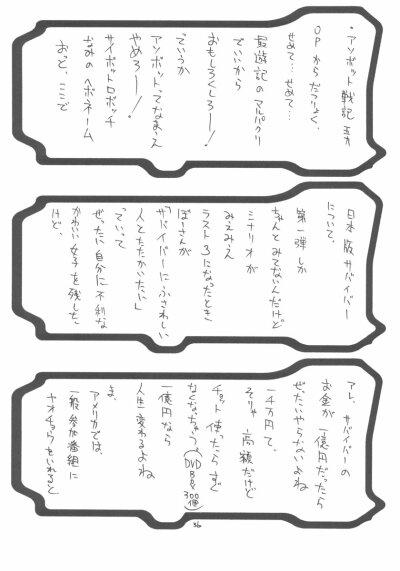 ・アソボット戦記五九
OPからだつりょく、
せめて…せめて…
西遊記のマルパクリ
でいいから
おもしろくしろー!
ていうか
アソボットってなまえ
やめろー!
サイボットロボッチ
なみのヘボネーム
おっと、ここで
日本版サバイバー
について、
第一弾しか
ちゃんとみてないんだけど
シナリオが
みえみえ
ラスト3になったとき
ぼーさんが
「サバイバーにふさわしい
人とたたかいたい」
っていって
ぜったい自分に不利な
かわいい女子を残した。
けど、
アレ、サバイバーの
お金が一億円だったら
ぜったいやらないよね
一千万円て、
そりゃ高額だけど
チョット使ったらすぐ
なくなっちゃう(DVDBOX300個)
一億円なら
人生変わるよね
ま、
アメリカでは、
一般参加番組に
ヤオチョウをいれると
36